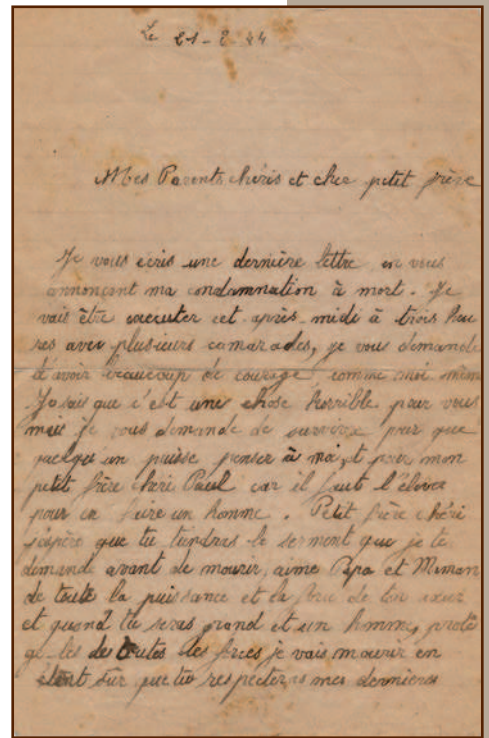 Le 21-2-44
Mes Parents chéris et cher petit frère
Je vous écris une dernière lettre en vous
annonçant ma condamnation à mort. Je
vais être executer cet après-midi à trois heu
res avec plusieurs camarades, je vous demande
d'avoir beaucoup de courage, comme moi même
Je sais que c'est une chose horrible pour vous
mais je vous demande de survivre pour que
quelqu'un puisse penser à moi, et pour mon
petit frère chéri Paul car il faut l'élever
pour en faire un homme. Petit frère chéri
j'espère que tu tiendras le serment que je te
demande avant de mourir, aime Papa et Maman
de toute la puissance et la force de ton cœur
et quand tu seras grand et un homme, protè
ge-les de toutes tes forces je vais mourir en
étant sûr que tu respecteras mes dernières